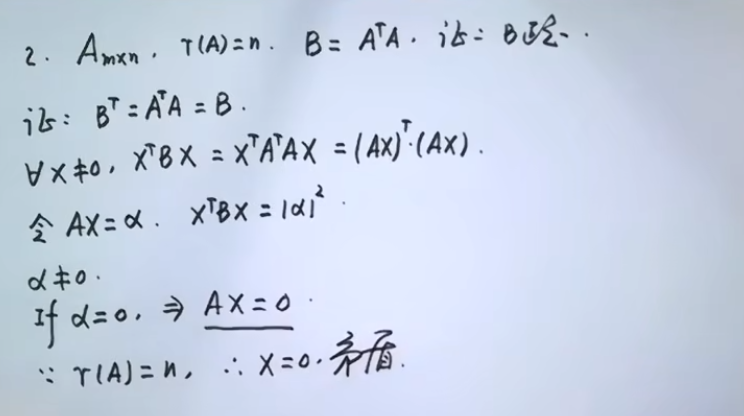 2. Aₘₓₙ. r(A)=n. B=AᵀA. 证: B正定.
证: Bᵀ=AᵀA=B.
∀X≠0, XᵀBX=XᵀAᵀAX=(AX)ᵀ·(AX).
令 AX=α. XᵀBX=|α|².
α≠0.
If α=0, ⇒ AX=0.
∵ r(A)=n, ∴ X=0. 矛盾.